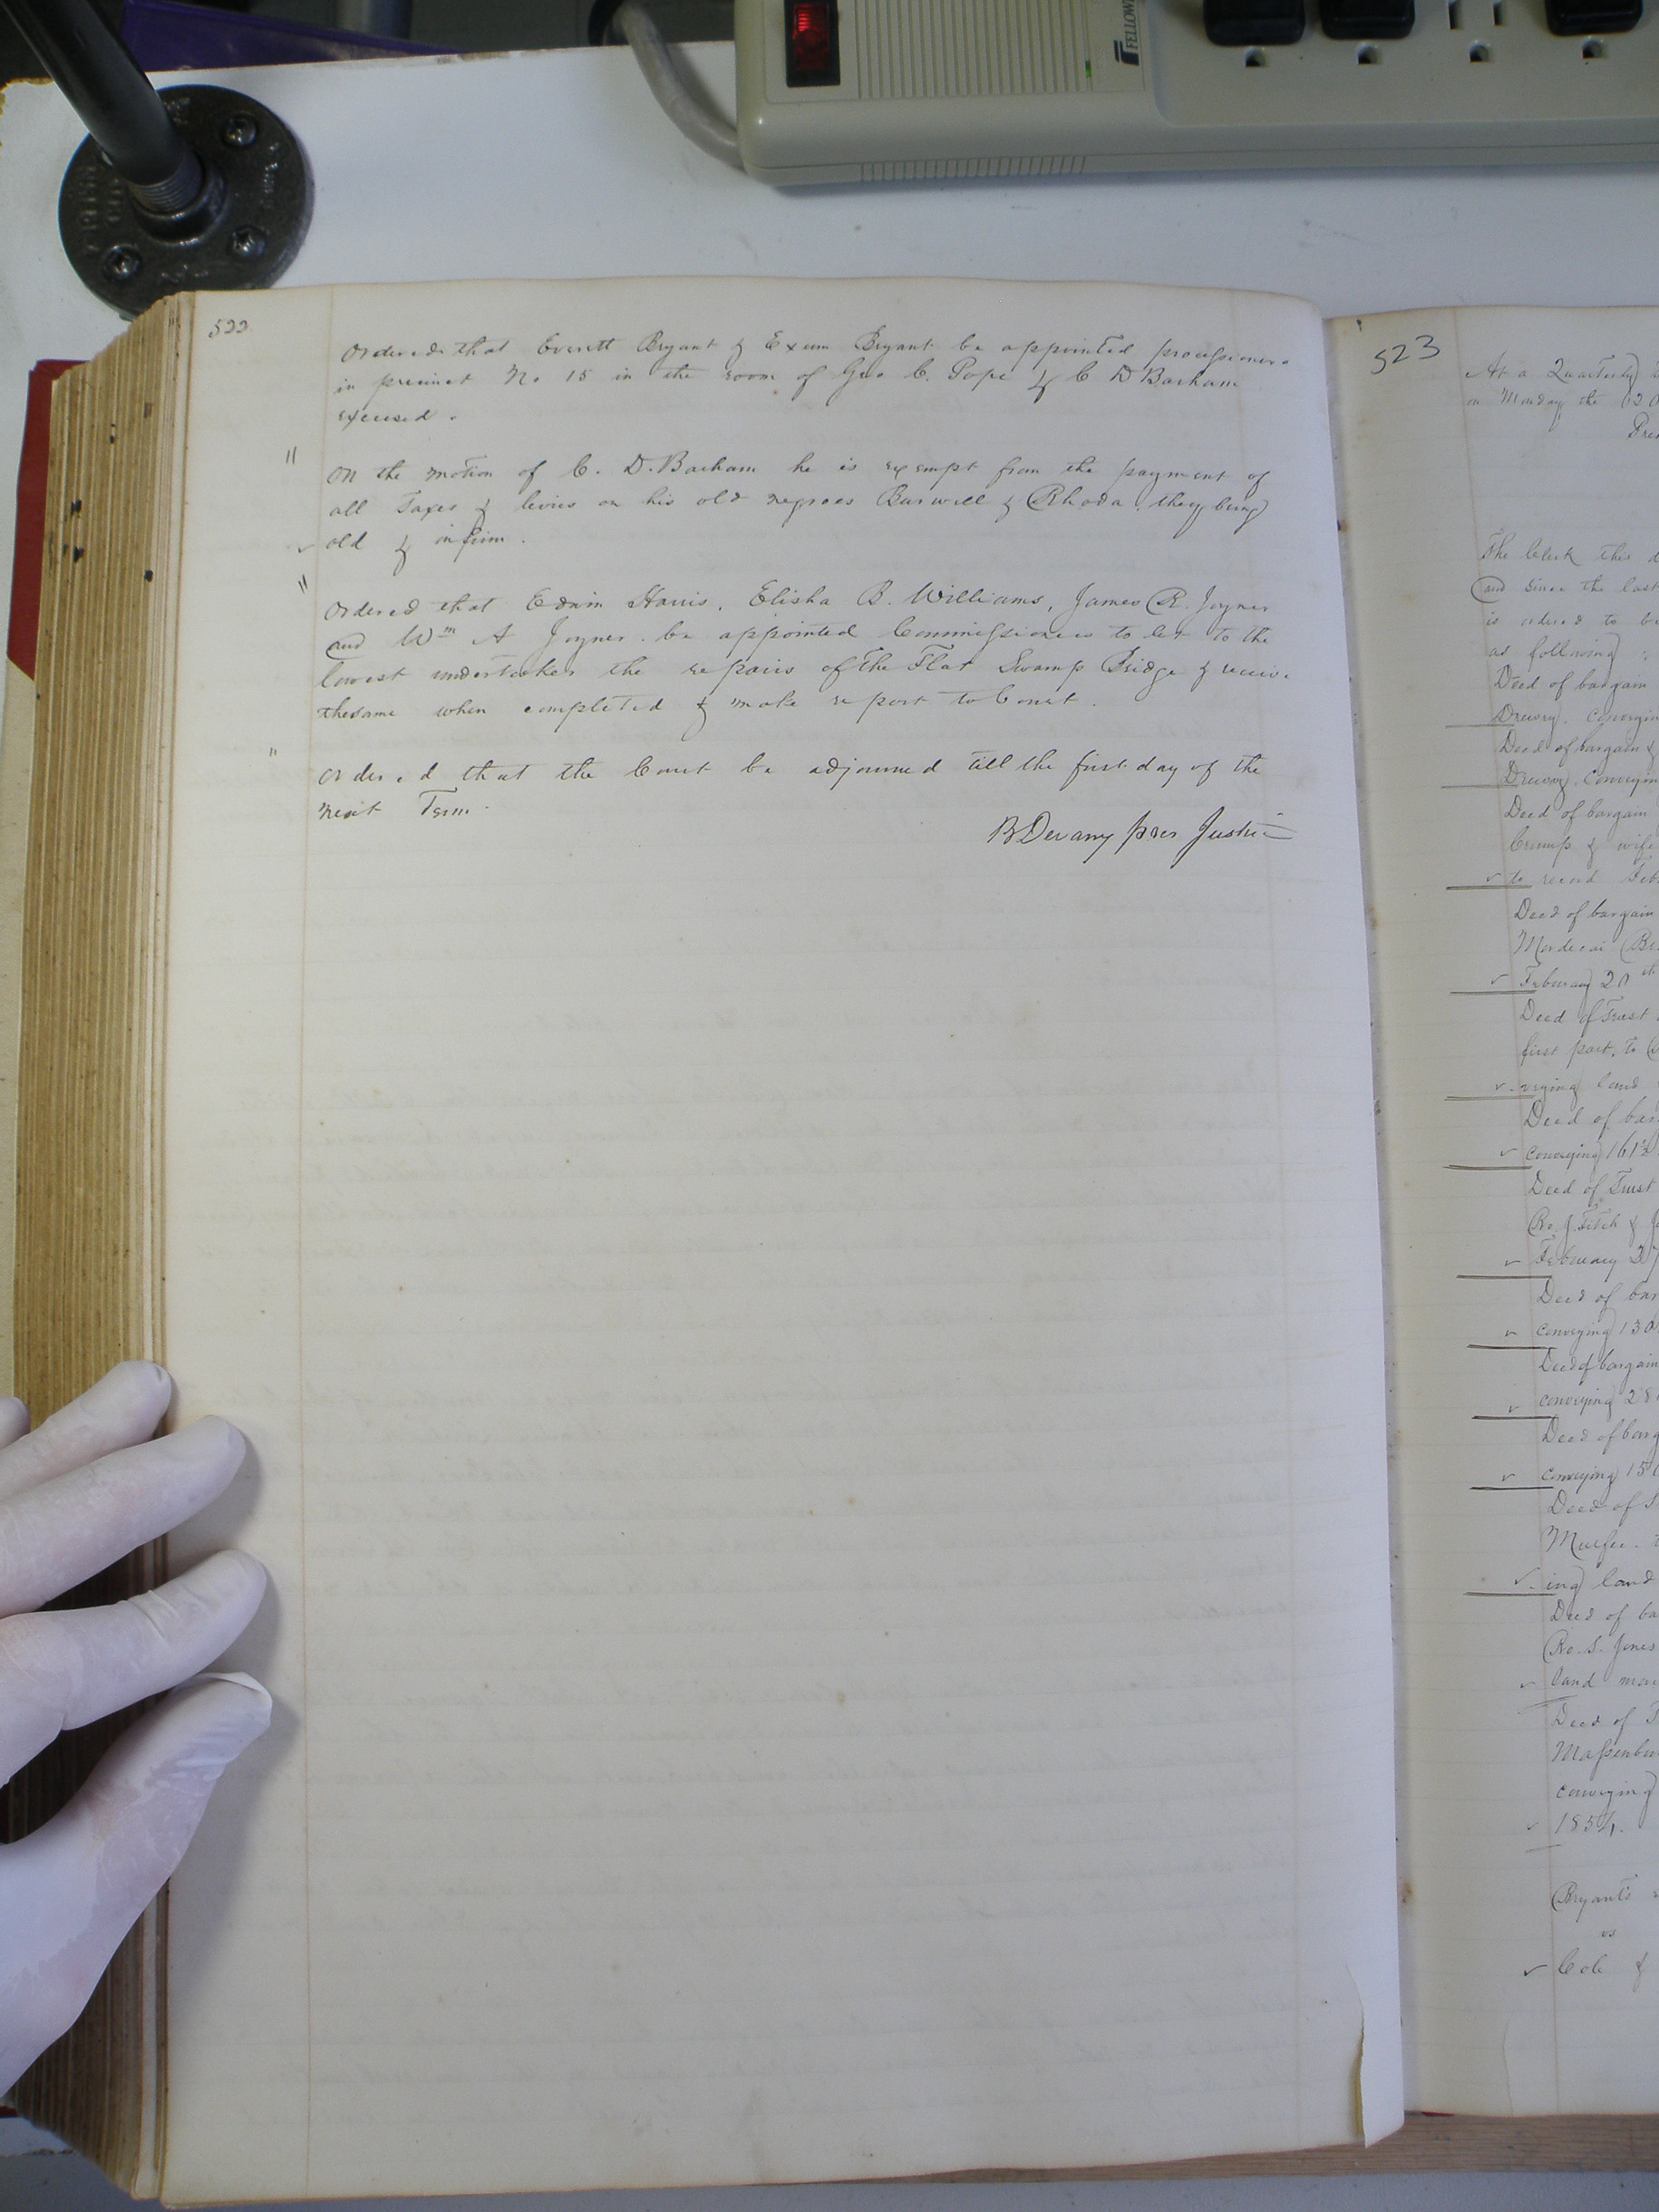 FELLOW
522
Ordered that Everett Bryant & Exum Bryant be appointed processioners
in precinct No 15 in the room of Geo C. Pope & C D Barham
excused.
On the motion of C. D. Barham he is exempt from the payment of
all Taxes & levies on his old negroes Burwell & Rhoda, they being
old & infirm.
Ordered that Edwin Harris, Elisha B. Williams, James R. Joyner
and Wm A Joyner be appointed Commissioners to let to the
lowest undertaker the repairs of the Flat Swamp Bridge & receive
the same when completed & make report to Court.
Ordered that the Court be adjourned till the first day of the
next Term.
B Devany pres Justice
523
At a Quarterly
on Monday the 20
Pre
The Clerk this d
and since the last
is ordered to be
as following:
Deed of bargain
Drewry. Conveyin
Deed of bargain &
Drewry. Conveyin
Deed of bargain
Crump & wife
to record Feb
Deed of bargain
Mordecai Br
February 20th
Deed of Trust
first part, to
veying land
Deed of bar
Conveying 161½
Deed of Trust
Ro. J. Fitch & J
February 27
Deed of bar
conveying 130
Deed of bargain
conveying 28
Deed of barg
conveying 150
Deed of
ing land
Deed of ba
Ro. S. Jones
land
Deed of T
Massenbur
conveying
1854.
Bryant's
vs
Cole &